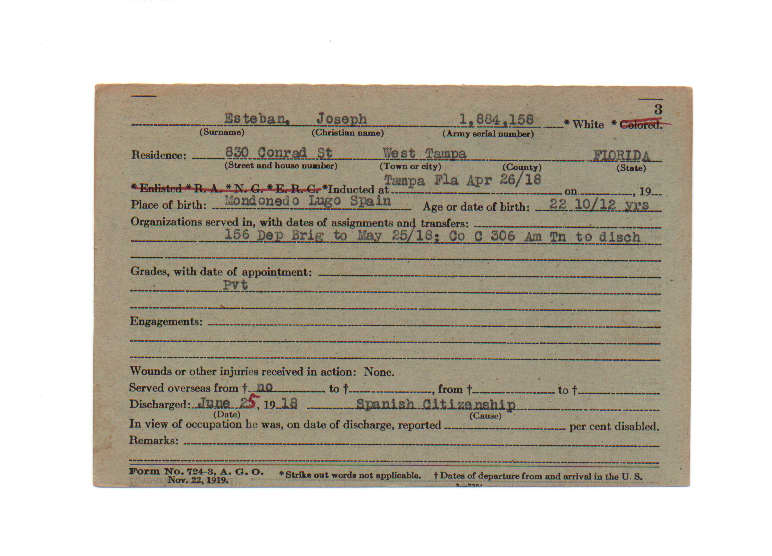 3
Esteban, Joseph 1,884,158 * White * Colored.
(Surname) (Christian name) (Army serial number)
Residence: 830 Conrad St West Tampa FLORIDA
(Street and house number) (Town or city) (County) (State)
* Enlisted * R. A. * N. G. * E. R. C. *Inducted at Tampa Fla Apr 26/18 on , 19
Place of birth: Mondonedo Lugo Spain Age or date of birth: 22 10/12 yrs
Organizations served in, with dates of assignments and transfers:
156 Dep Brig to May 25/18; Co C 306 Am Tn to disch
Grades, with date of appointment:
Pvt
Engagements:
Wounds or other injuries received in action: None.
Served overseas from † no to † , from † to †
Discharged: June 25, 19 18 Spanish Citizenship
(Date) (Cause)
In view of occupation he was, on date of discharge, reported per cent disabled.
Remarks:
Form No. 724-3, A. G. O. *Strike out words not applicable. † Dates of departure from and arrival in the U. S.
Nov. 22, 1919.